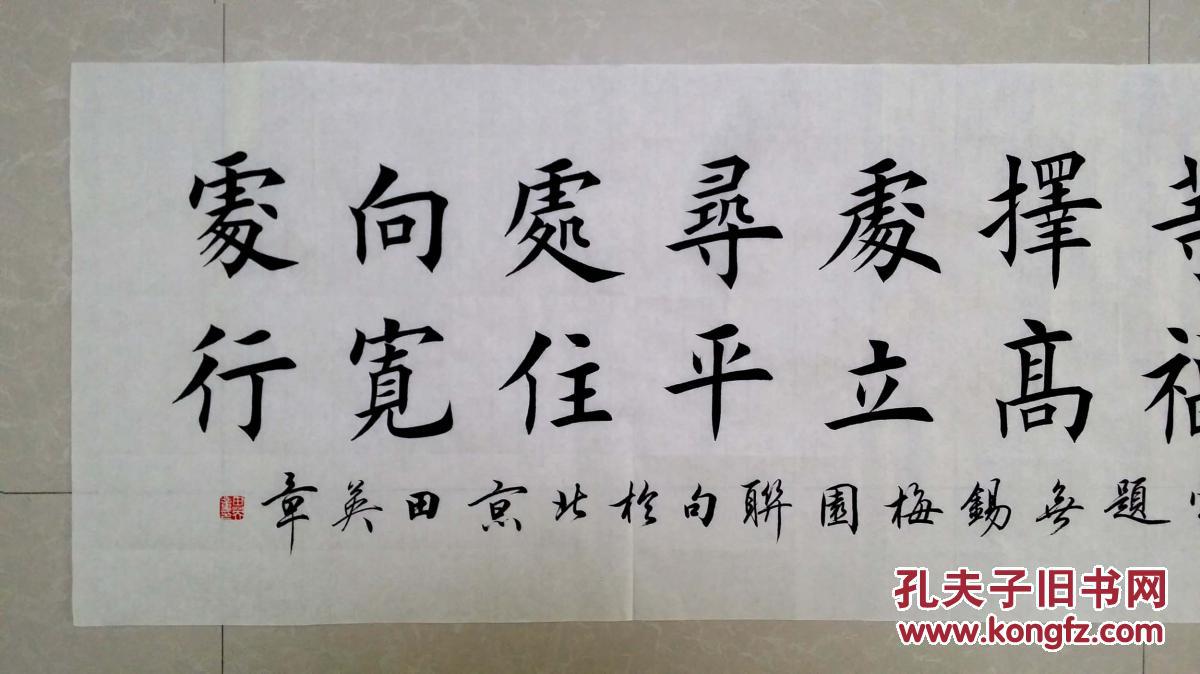 擇高
處立
尋平
處住
向寬
處行
題無錫梅園聯句於北京田英章
孔夫子旧书网
www.kongfz.com